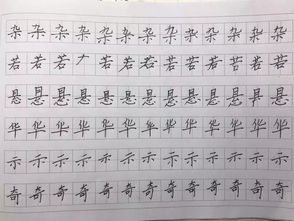 杂杂杂杂杂杂杂杂杂杂杂杂
若若若ナ若若若若若若若若
悬悬悬悬悬悬悬悬悬悬悬悬
华华华华华华华华华华华华
示示示示示示示示示示示示
奇奇奇奇奇奇奇奇奇奇奇奇